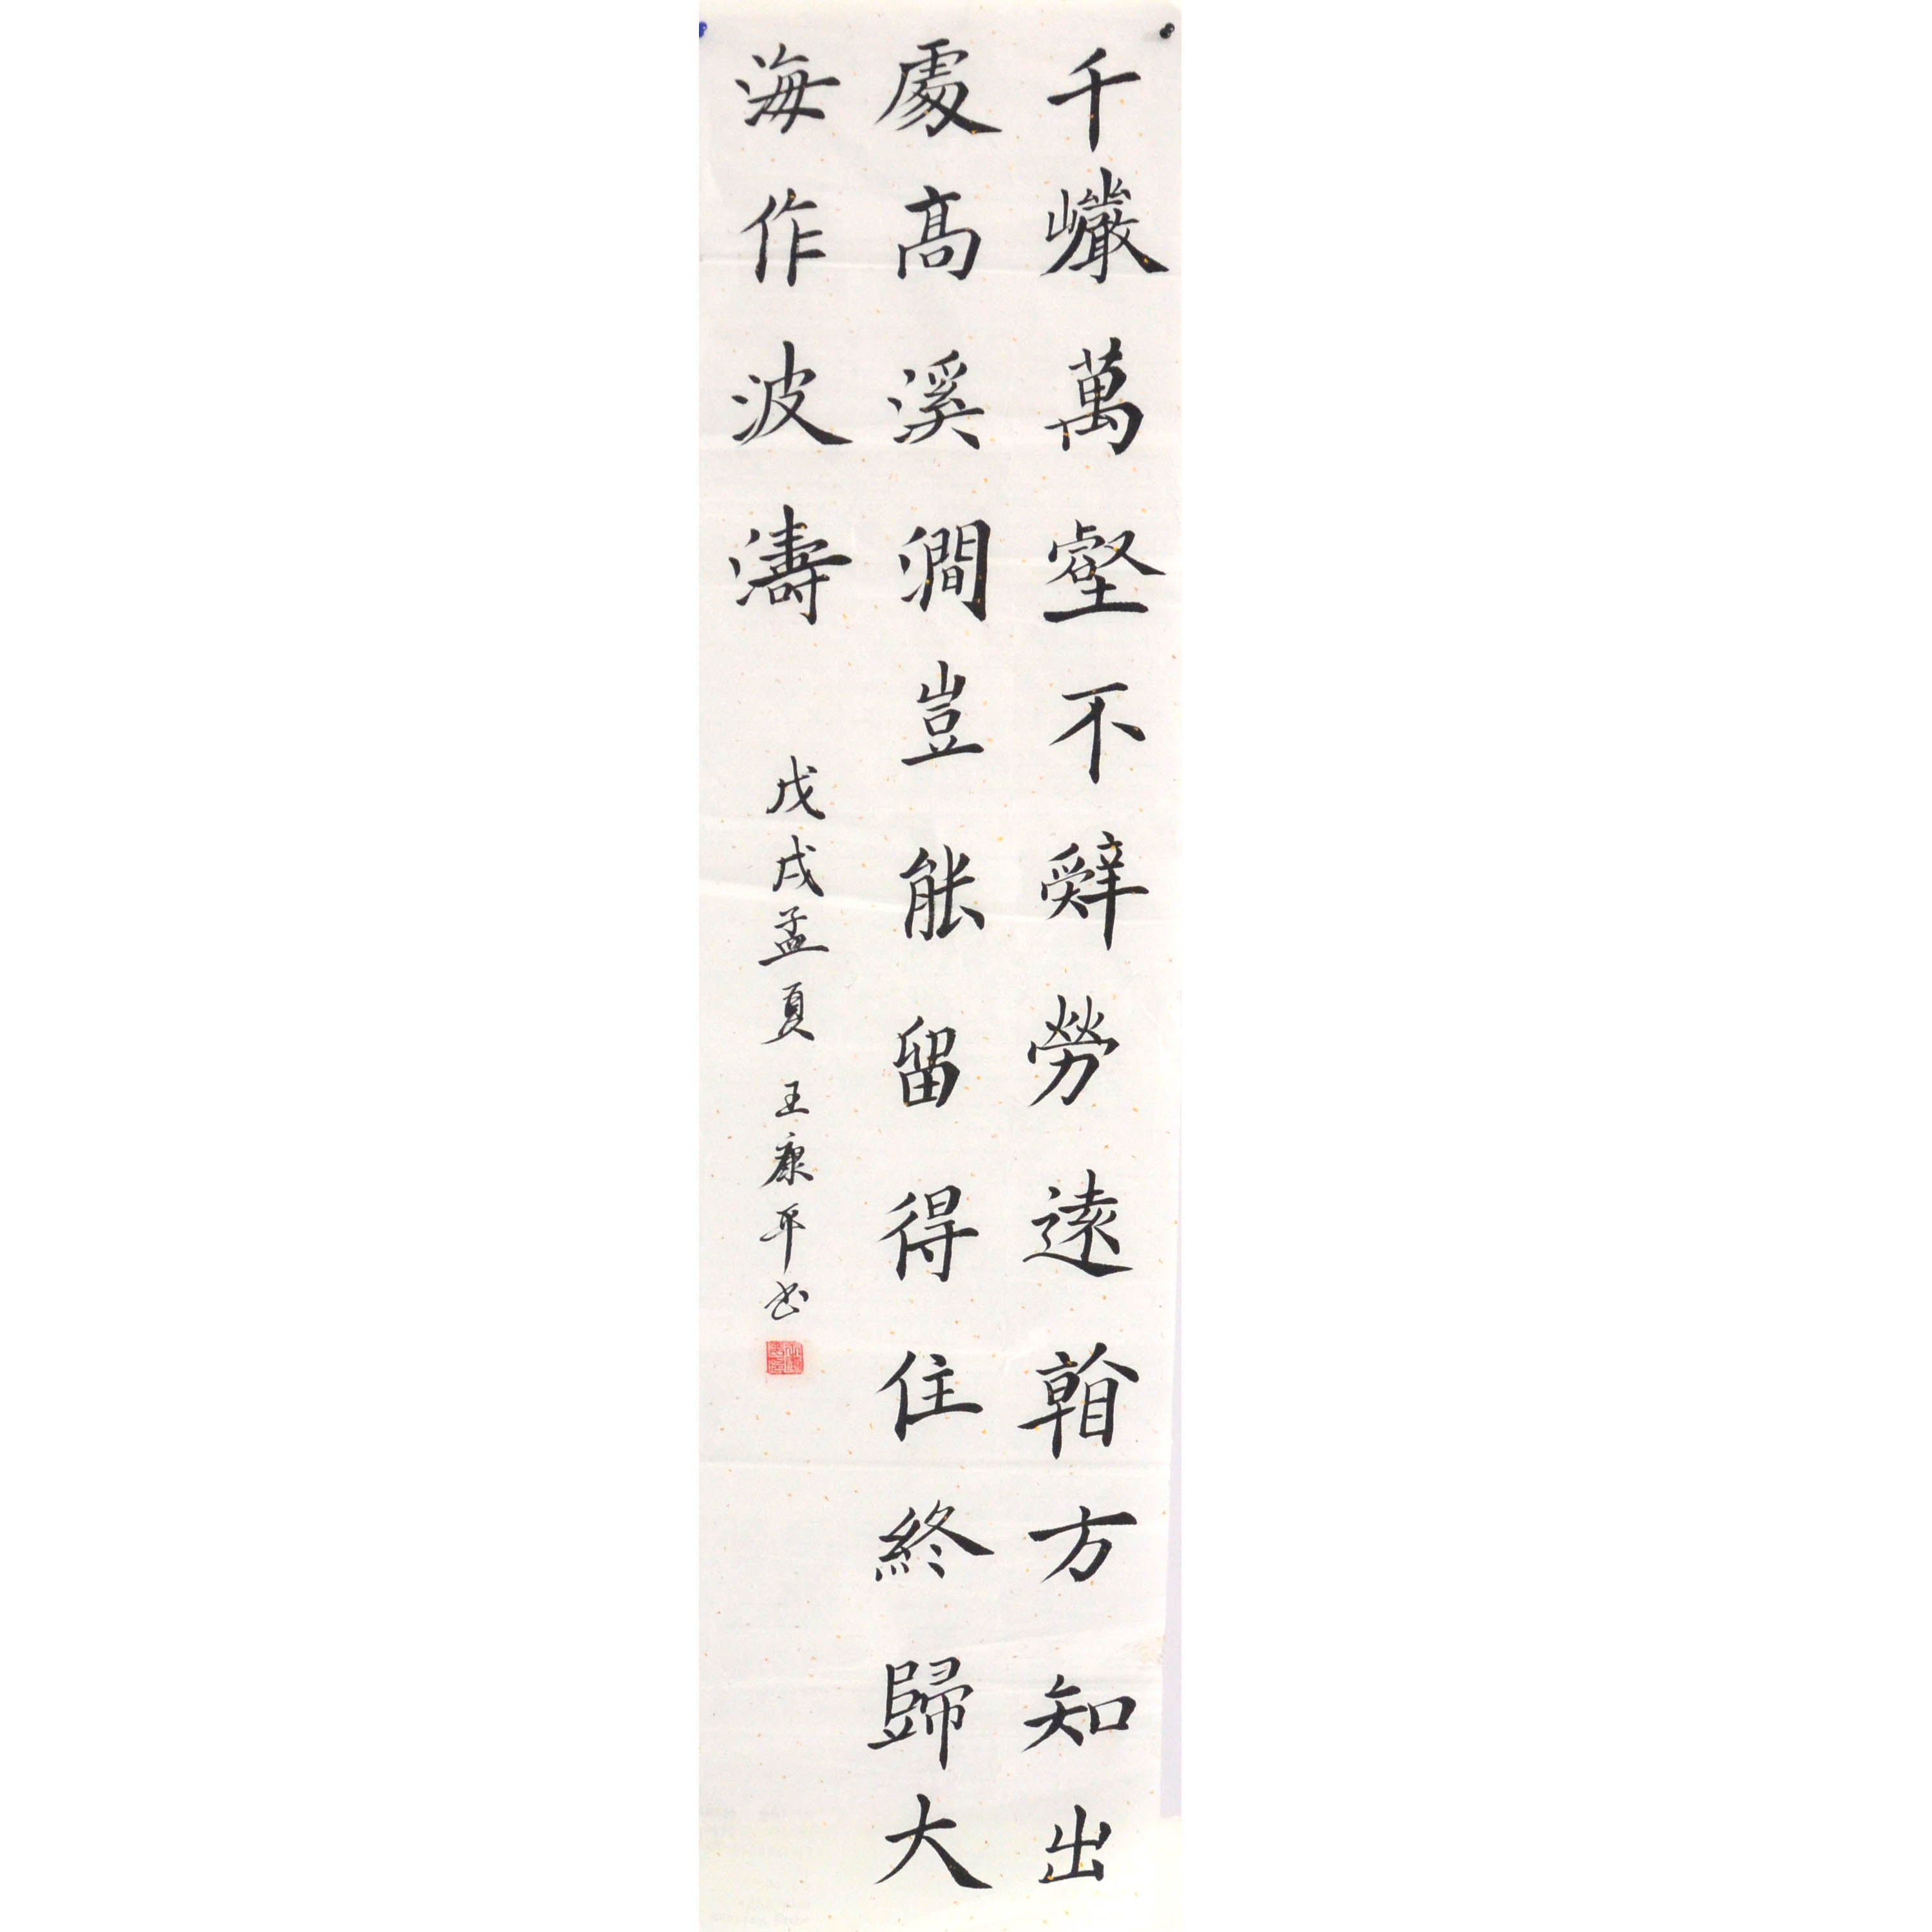 千巗萬壑不辤勞遠𨋳方知出
處高溪澗豈能留得住終歸大
海作波濤
戊戌孟夏 王康平书